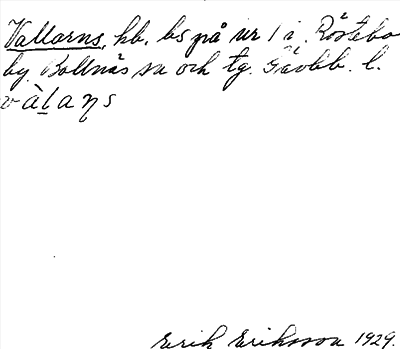 Vallarns, hb. bs på ur 1 i Röstebo
by. Bollnäs sn och tg. Gävleb. l.
vàḷaņs
Erik Eriksson 1929.